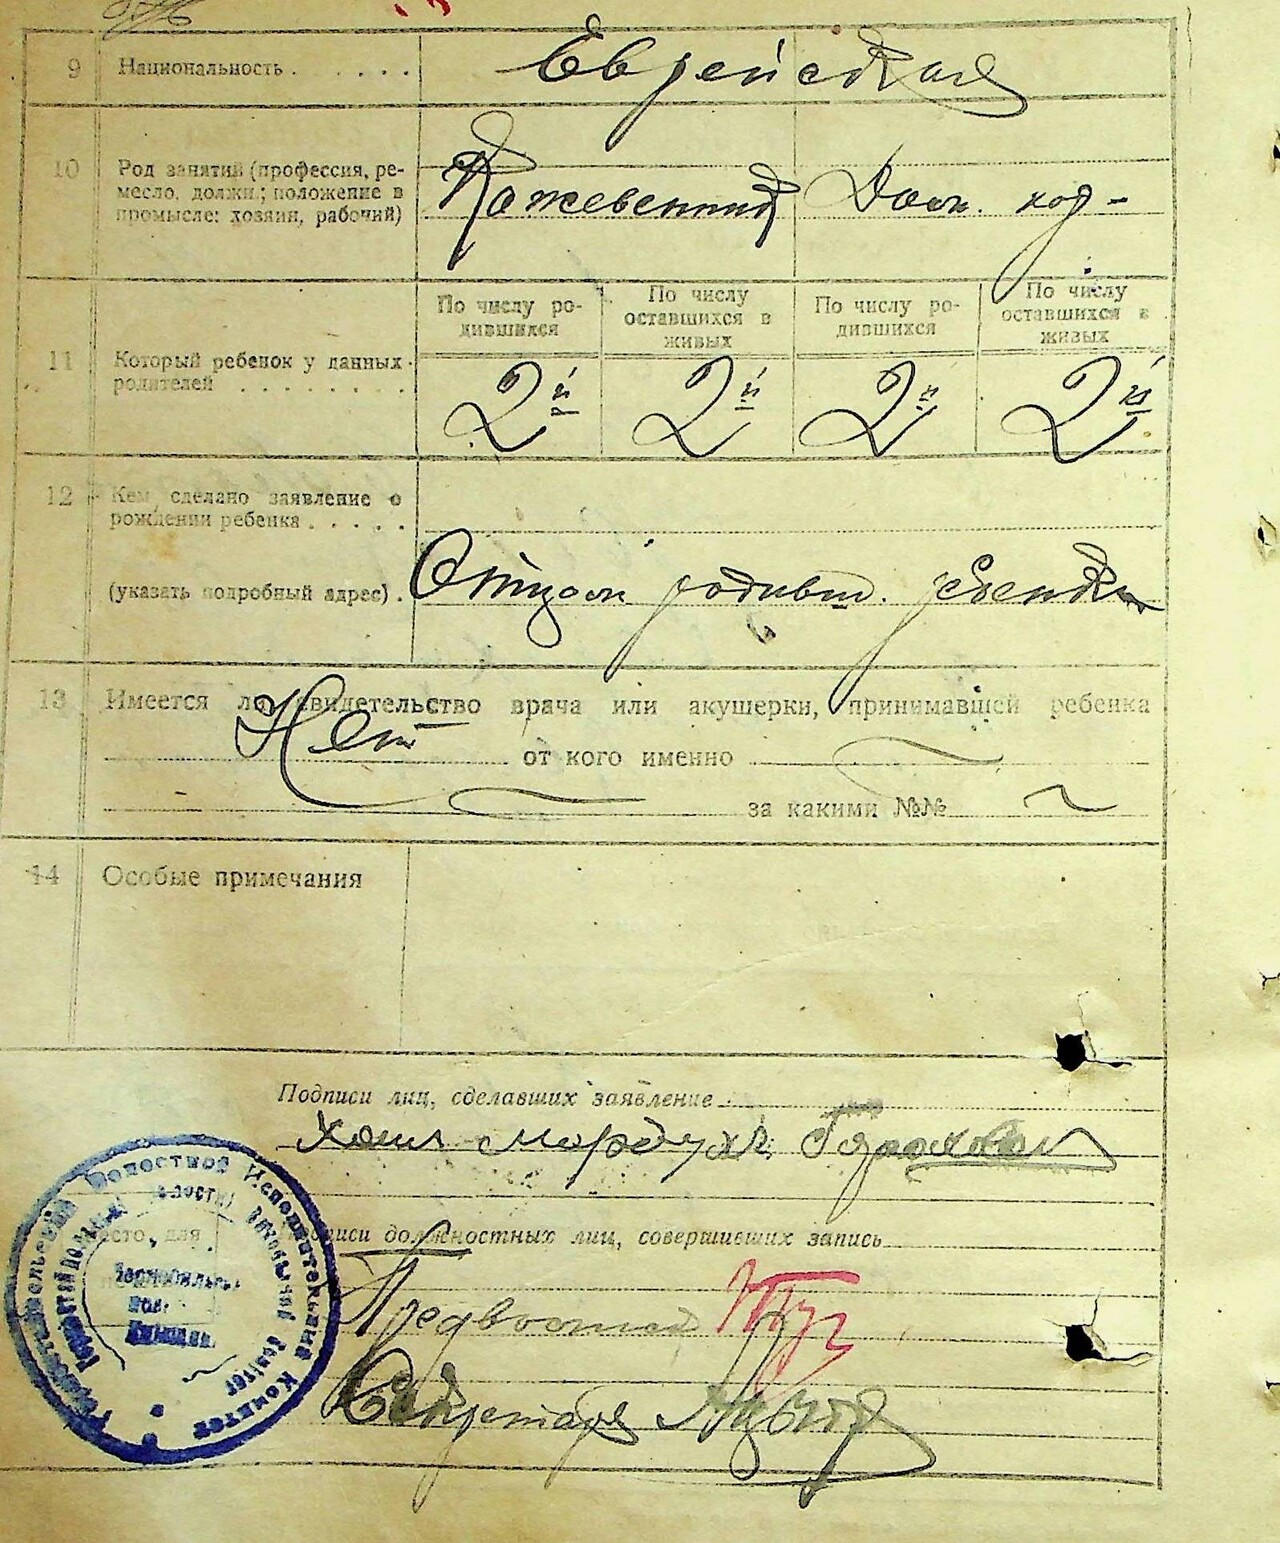 9 Национальность . . . . . . Еврейская
10 Род занятий (профессия, ре-
месло, должн.; положение в
промысле: хозяин, рабочий)
Кожевенник Дом. хоз-
По числу ро-
дившихся
По числу
оставшихся в
живых
По числу ро-
дившихся
По числу
оставшихся в
живых
11 Который ребенок у данных
родителей . . . . . . . .
2й 2й 2й 2й
12 Кем сделано заявление о
рождении ребенка . . . . .
(указать подробный адрес) . Отцом родивш. ребенка
13 Имеется ли свидетельство врача или акушерки, принимавшей ребенка
Нет от кого именно
за какими №№
14 Особые примечания
Подписи лиц, сделавших заявление
Мордух
Место, для
Подписи должностных лиц, совершивших запись
Предволостком
Секретарь
Волостной Исполнительный Комитет